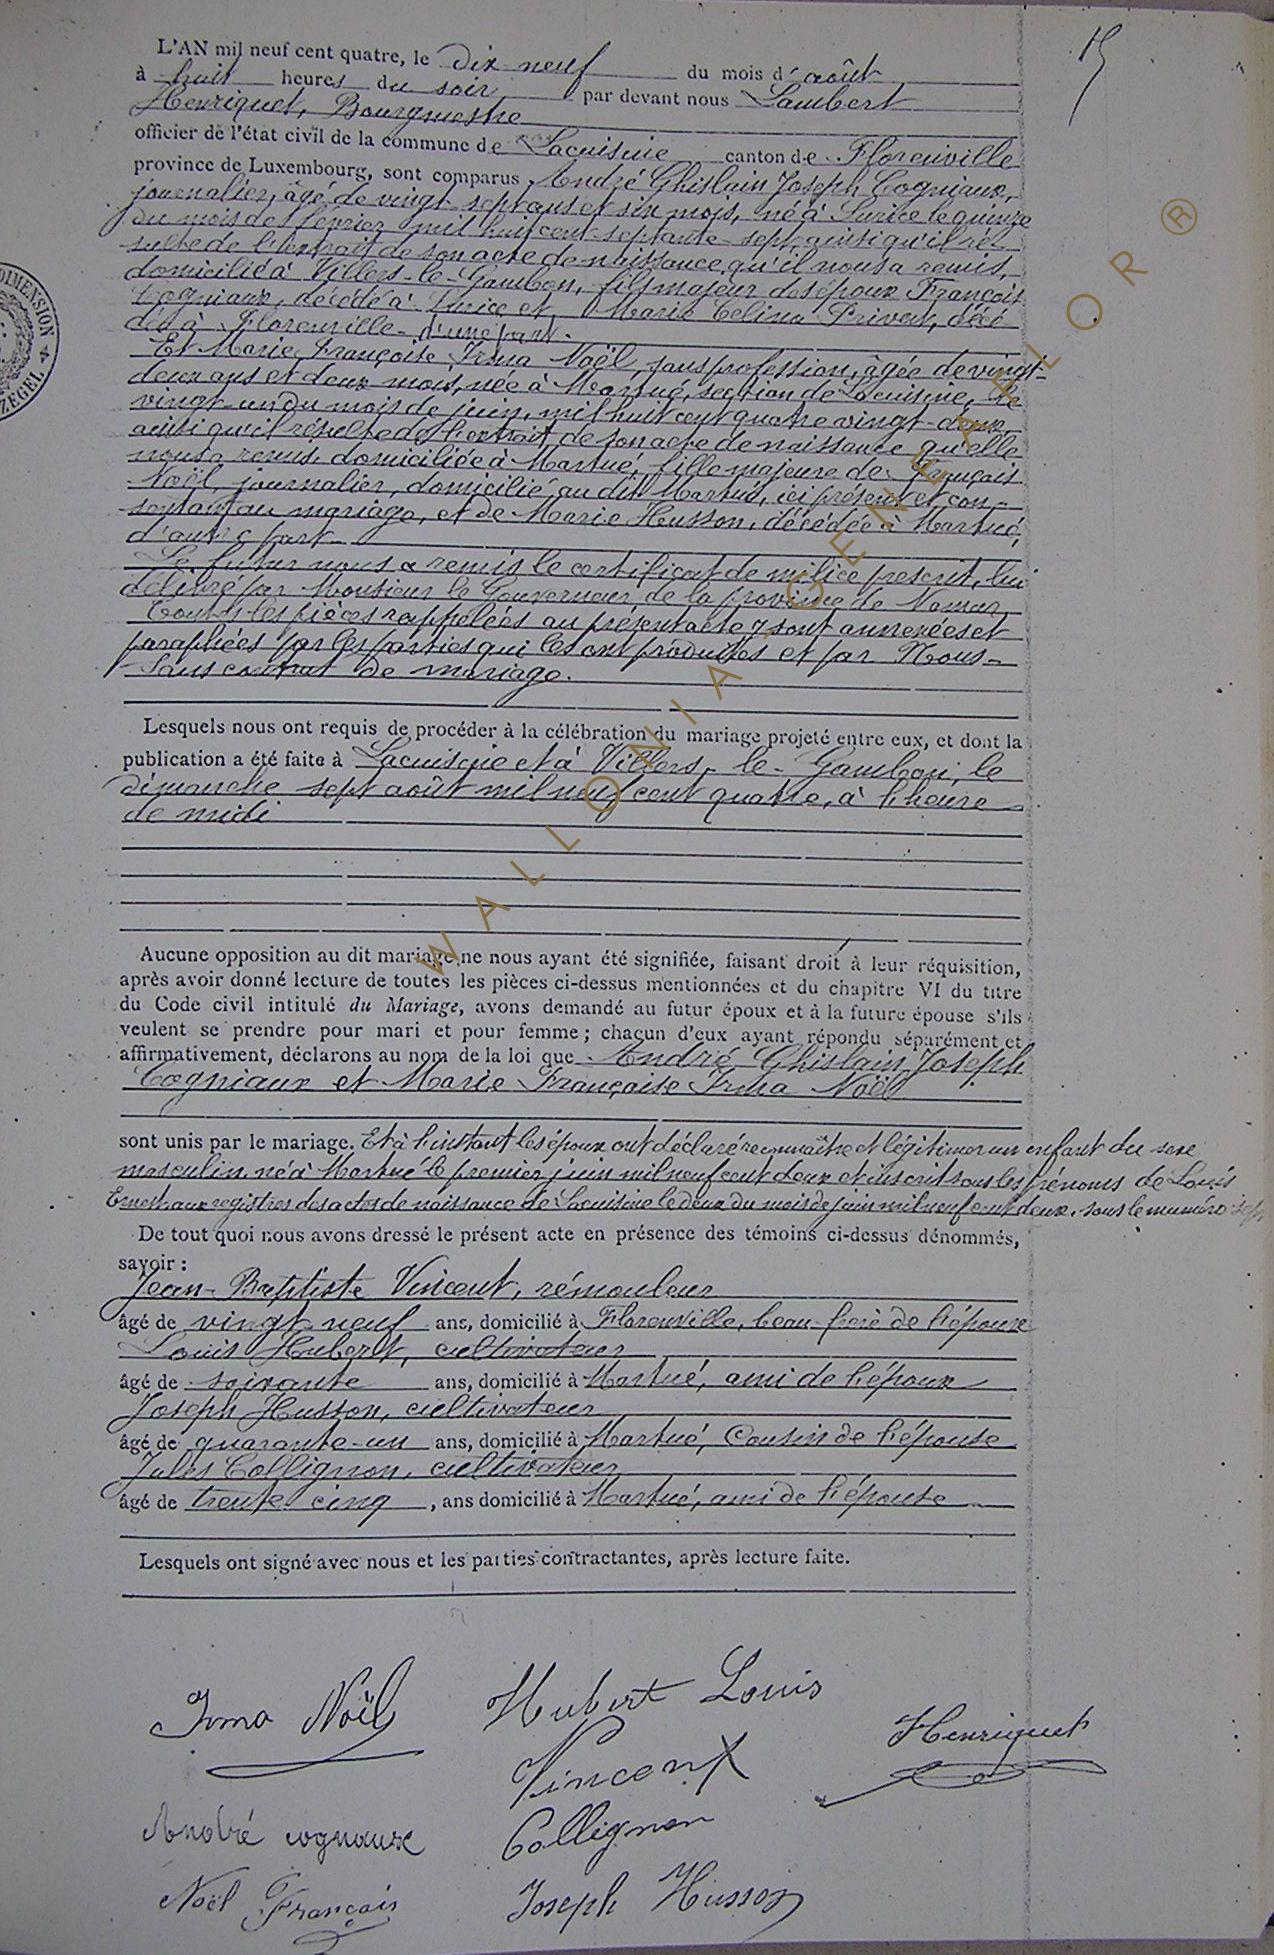 15
L'AN mil neuf cent quatre, le dix neuf du mois d'août
à huit heures du soir par devant nous Lambert
Henriquet, Bourgmestre
officier de l'état civil de la commune de Lacuisine canton de Florenville
province de Luxembourg, sont comparus André Ghislain Joseph Cogniaux,
journalier, âgé de vingt-sept ans et six mois, né à Surice le quinze
du mois de février mil huit cent septante-sept, ainsi qu'il ré-
sulte de l'extrait de son acte de naissance qu'il nous a remis,
domicilié à Villers-le-Gambon, fils majeur des époux François
Cogniaux, décédé à Surice et Marie Celina Privot, décé-
dée à Florenville d'une part.
Et Marie Françoise Irma Noël, sans profession, âgée de vingt-
deux ans et deux mois, née à Martué, section de Lacuisine, le
vingt-un du mois de juin, mil huit cent quatre vingt-deux,
ainsi qu'il résulte de l'extrait de son acte de naissance qu'elle
nous a remis, domiciliée à Martué, fille majeure de François
Noël, journalier, domicilié au dit Martué, ici présent et con-
sentant au mariage, et de Marie Husson, décédée à Martué,
d'autre part.
Le futur nous a remis le certificat de milice prescrit, lui
délivré par Monsieur le Gouverneur de la province de Namur
Toutes les pièces rappelées au présent acte y sont annexées et
paraphées par les parties qui les ont produites et par Nous-
Sans contrat de mariage.
Lesquels nous ont requis de procéder à la célébration du mariage projeté entre eux, et dont la
publication a été faite à Lacuisine et à Villers-le-Gambon, le
dimanche sept août mil neuf cent quatre, à l'heure
de midi
Aucune opposition au dit mariage ne nous ayant été signifiée, faisant droit à leur réquisition,
après avoir donné lecture de toutes les pièces ci-dessus mentionnées et du chapitre VI du titre
du Code civil intitulé du Mariage, avons demandé au futur époux et à la future épouse s'ils
veulent se prendre pour mari et pour femme ; chacun d'eux ayant répondu séparément et
affirmativement, déclarons au nom de la loi que André Ghislain Joseph
Cogniaux et Marie Françoise Irma Noël
sont unis par le mariage. Et à l'instant les époux ont déclaré reconnaître et légitimer un enfant du sexe
masculin, né à Martué le premier juin mil neuf cent deux et inscrit sous les prénoms de Louis
Ernest aux registres des actes de naissance de Lacuisine le deux du mois de juin mil neuf cent deux, sous le numéro sept
De tout quoi nous avons dressé le présent acte en présence des témoins ci-dessus dénommés,
savoir :
Jean-Baptiste Vincent, rémouleur
âgé de vingt neuf ans, domicilié à Florenville, beau-frère de l'époux
Louis Hubert, cultivateur
âgé de soixante ans, domicilié à Martué, ami de l'époux
Joseph Husson, cultivateur
âgé de quarante-un ans, domicilié à Martué, Cousin de l'épouse
Jules Collignon, cultivateur
âgé de trente cinq, ans domicilié à Martué, ami de l'épouse
Lesquels ont signé avec nous et les parties contractantes, après lecture faite.
Irma Noël
Hubert Louis
Henriquet
Vincent
André cogniaux
Collignon
Noël François
Joseph Husson
DIMENSION
ZEGEL
WALLONIA-GENEAFLOR ®